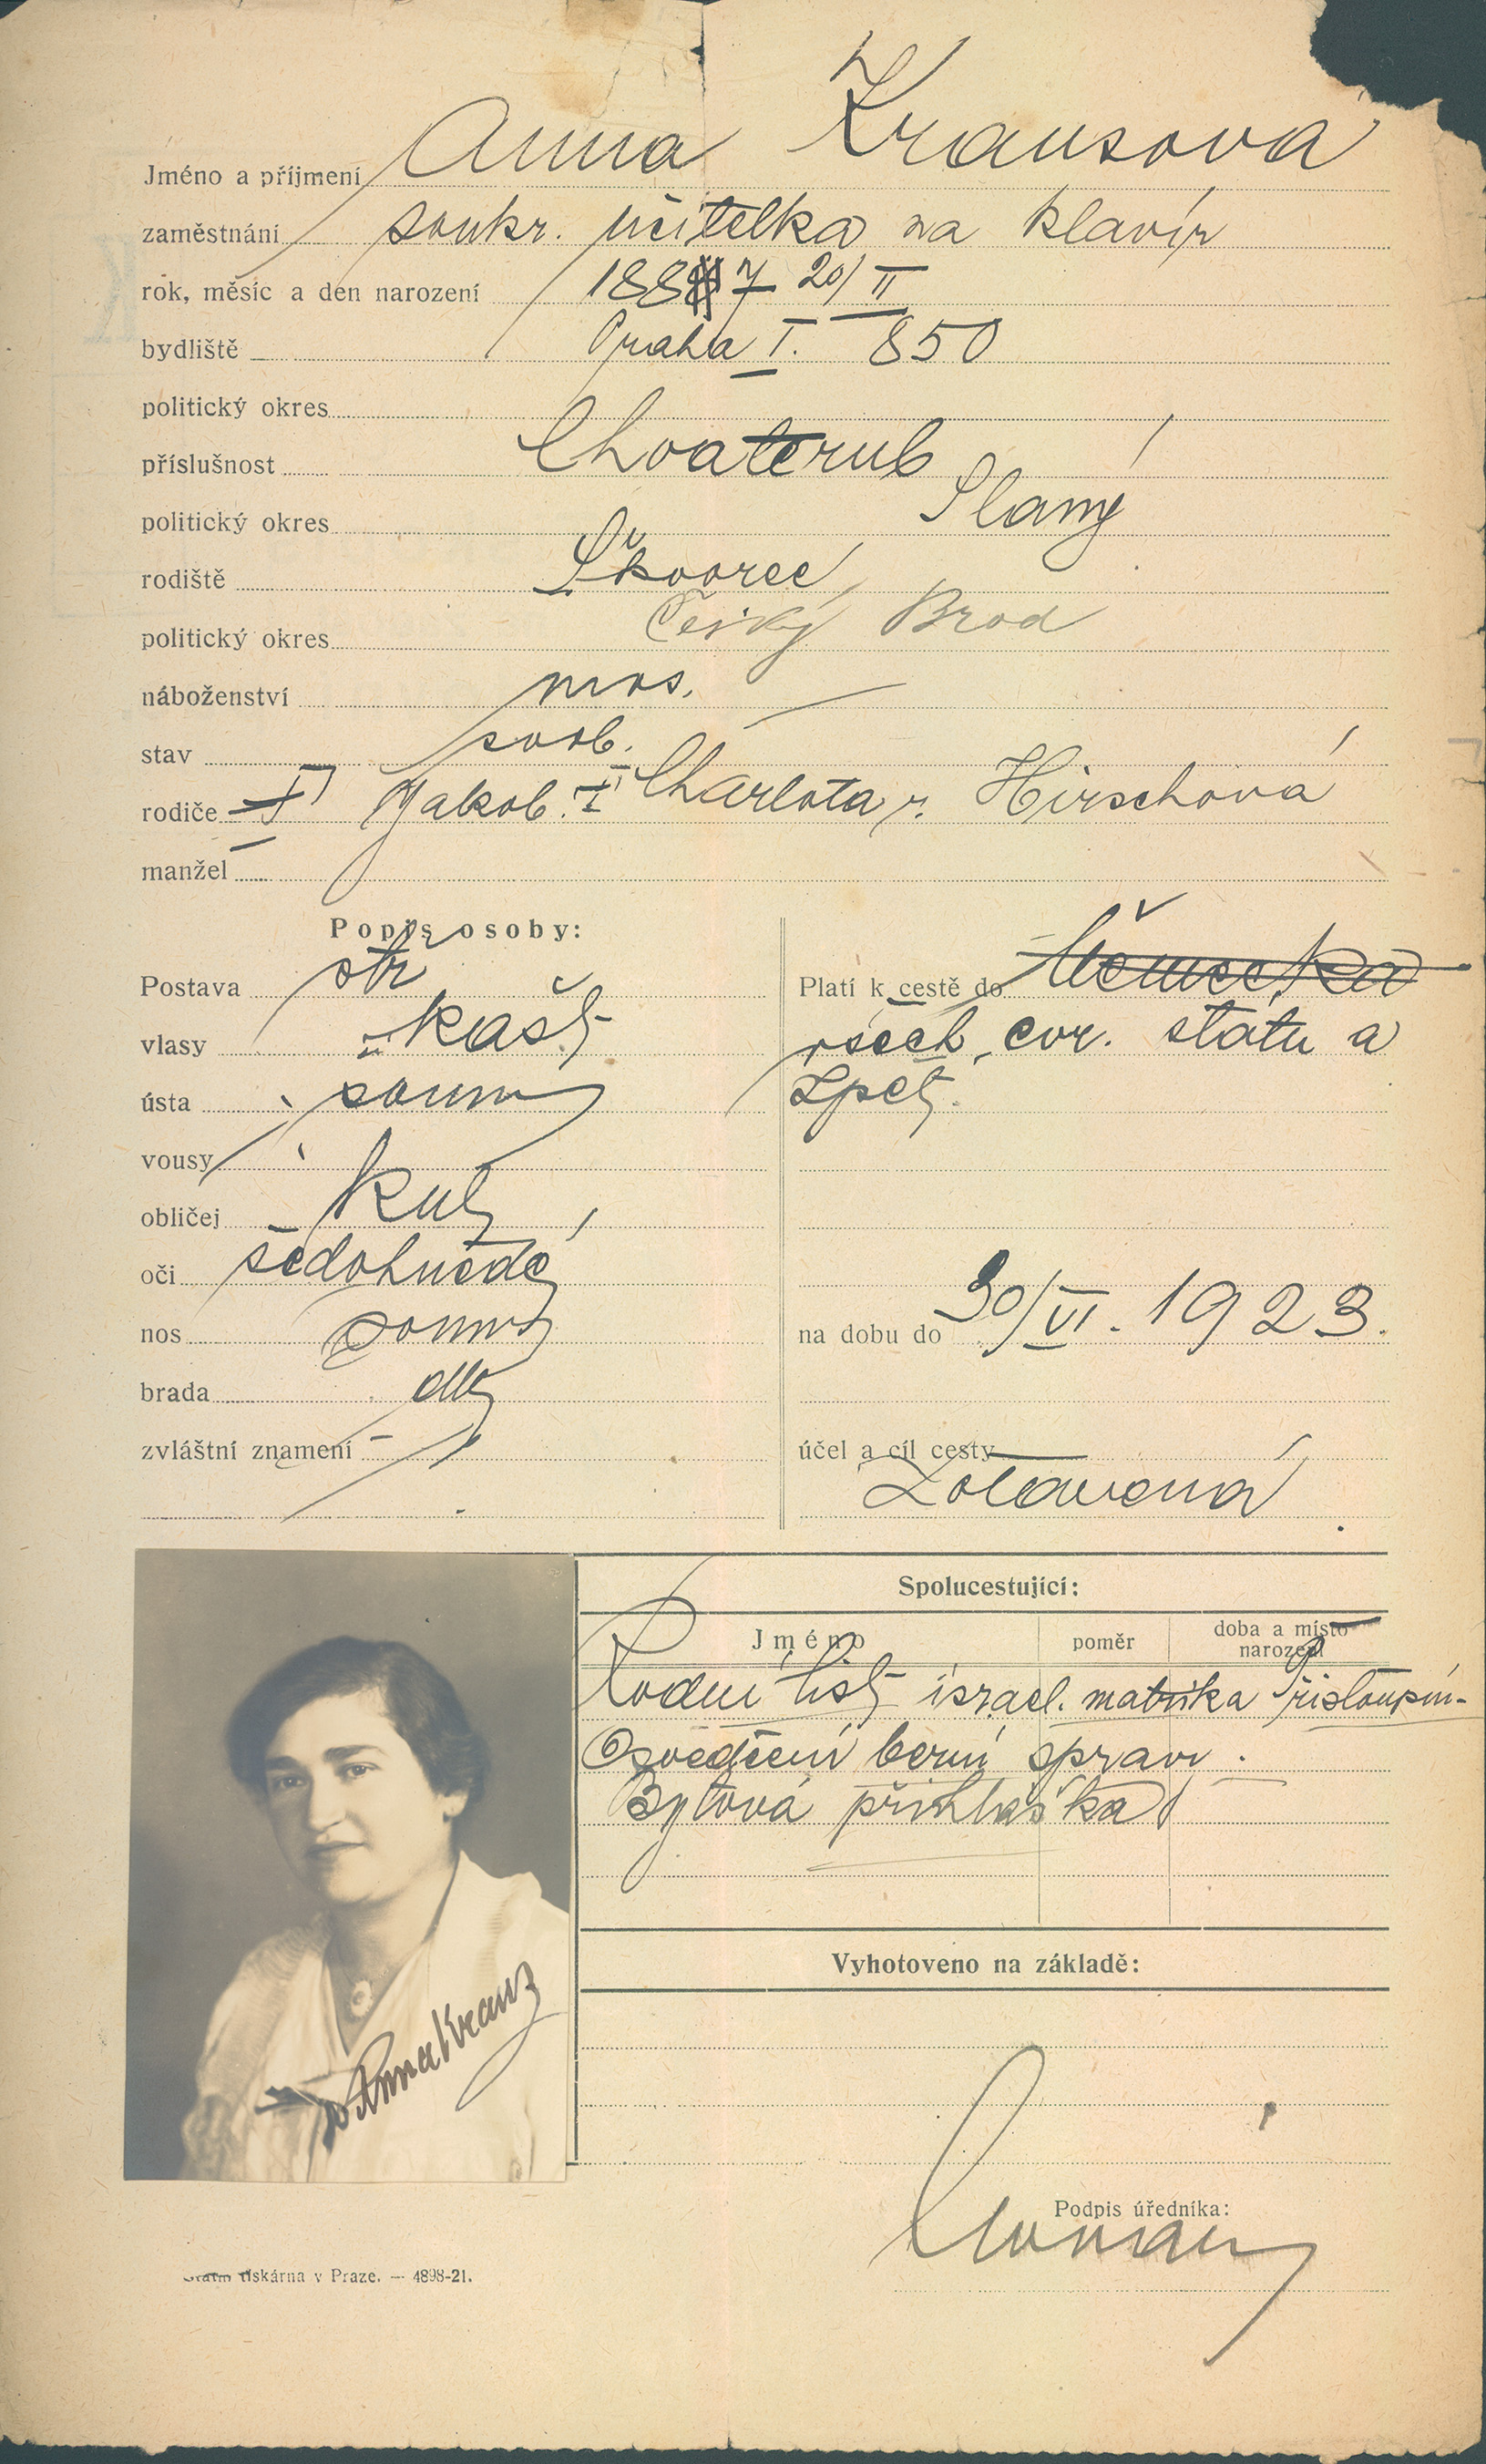 Jméno a příjmení Anna Krausová
zaměstnání soukr. učitelka na klavír
rok, měsíc a den narození 1887 20/II
bydliště Praha I. 850
politický okres
příslušnost Chvaterub
politický okres Slaný
rodiště Škvorec
politický okres Český Brod
náboženství mos.
stav svob.
rodiče † Jakob. † Charlota r. Hirschová
manžel
Popis osoby:
Postava stř
vlasy kašt
ústa soum
vousy
obličej kul
oči šedohnědé
nos soum
brada dlú
zvláštní znamení
Platí k cestě do Německa
všech evr. států a
zpět.
na dobu do 30/VI. 1923.
účel a cíl cesty
Zotavená
Spolucestující:
Jméno poměr doba a místo narození
Rodní list israel. matrika Přistoupim-
Osvědčení berní správi.
Bytová přihláška
Vyhotoveno na základě:
Anna Kraus
Podpis úředníka:
Státní tiskárna v Praze. — 4898-21.